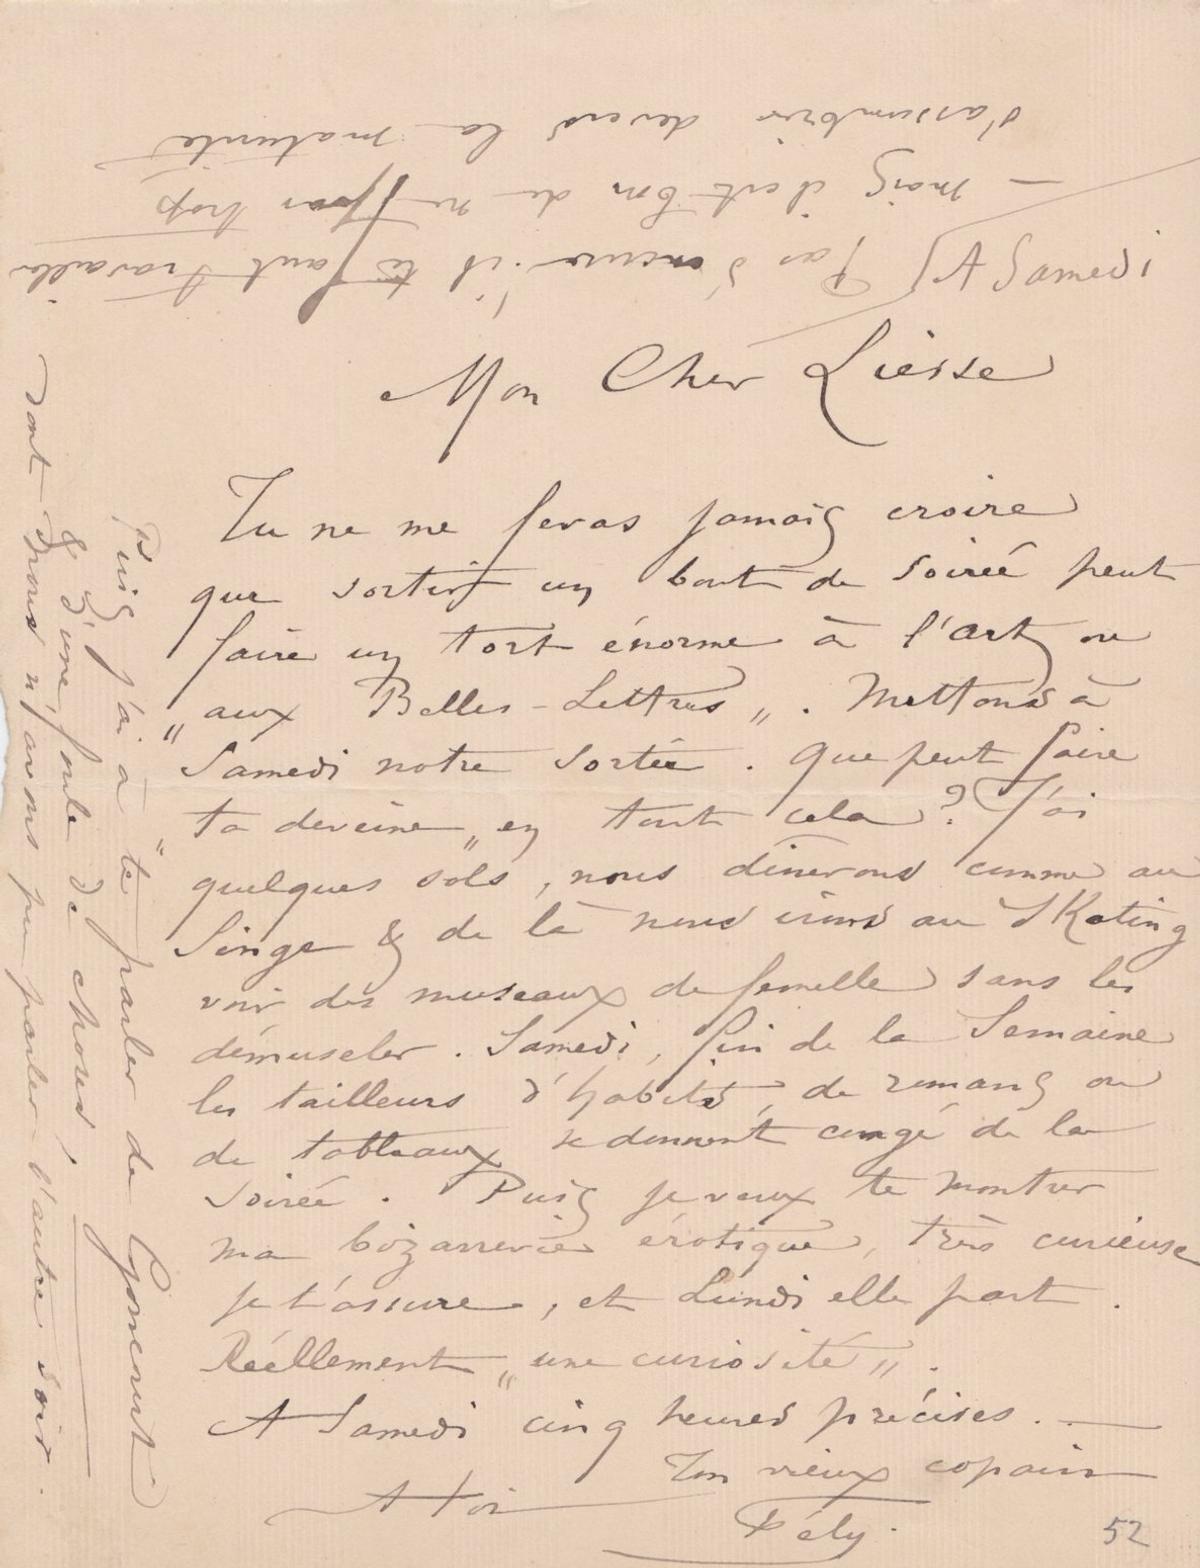 Mon Cher Liesse
Tu ne me feras jamais croire
que sortir un bout de soirée peut
faire un tort énorme à l'art ou
"aux Belles-Lettres". Mettons à
Samedi notre sortie. Que peut faire
ta deveine "en tout cela"? J'ai
quelques sols, nous dinerons comme au
Singe & de là nous irons au Skating
voir des museaux de femelle sans les
démuseler. Samedi, fin de la Semaine
les tailleurs d'habits, de romans ou
de tableaux se donnent congé de la
soirée. Puis je veux te montrer
ma bizarrerie érotique, très curieuse
je t'assure, et Lundi elle part.
Réellement "une curiosité".
A Samedi cinq heures précises. —
Ton vieux copain
A toi
Fély.
52
Puis j'ai à te parler de Goncourt
& d'une foule de choses,
dont nous n'avons pu parler l'autre soir.
A Samedi
Pas d'excuse. il te faut travailler
— mais il est bon de ne pas trop
s'assombrir devers la maturité